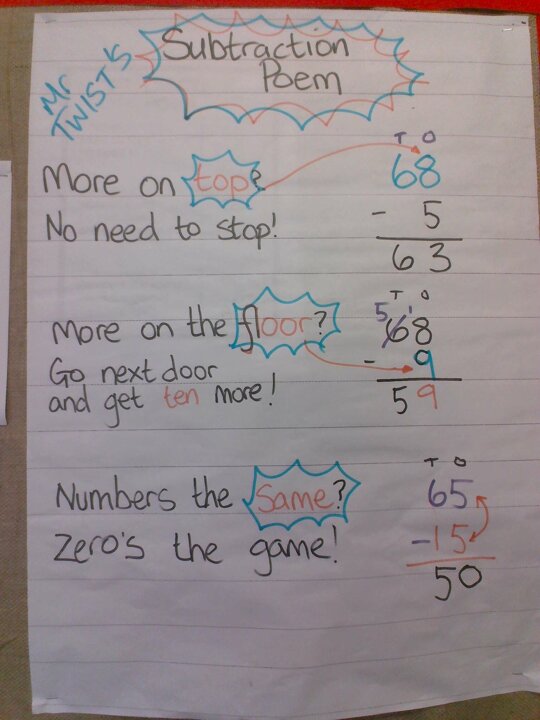 Mr
TWIST'S
Subtraction
Poem
T O
More on top? 68
No need to stop! - 5
63
T O
More on the floor? 5 6 18
Go next door - 9
and get ten more! 59
T O
Numbers the Same? 65
Zero's the game! -15
50